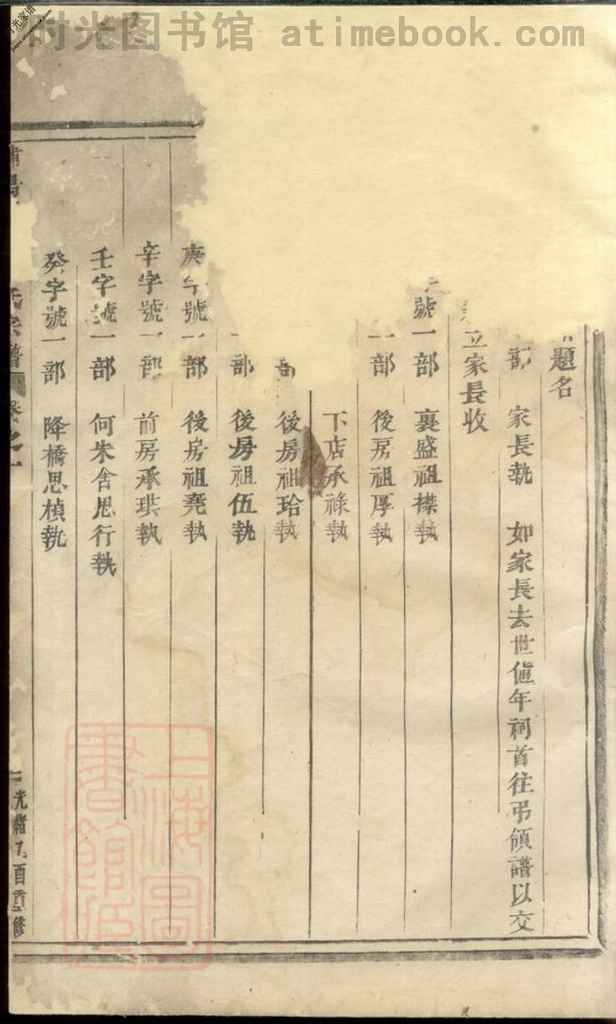 时光图书馆 atimebook.com
題名
部 家長執 如家長去世值年祠首往弔領譜以交
立家長收
號一部 裏盛祖襟執
一部 後房祖厚執
下店承祿執
部 後房祖珨執
部 後房祖伍執
庚字號一部 後房祖堯執
辛字號一部 前房承琪執
壬字號一部 何朱舍思行執
癸字號一部 降橋思楨執
宗譜 卷之一 光緒乙酉重修
上海圖書館藏